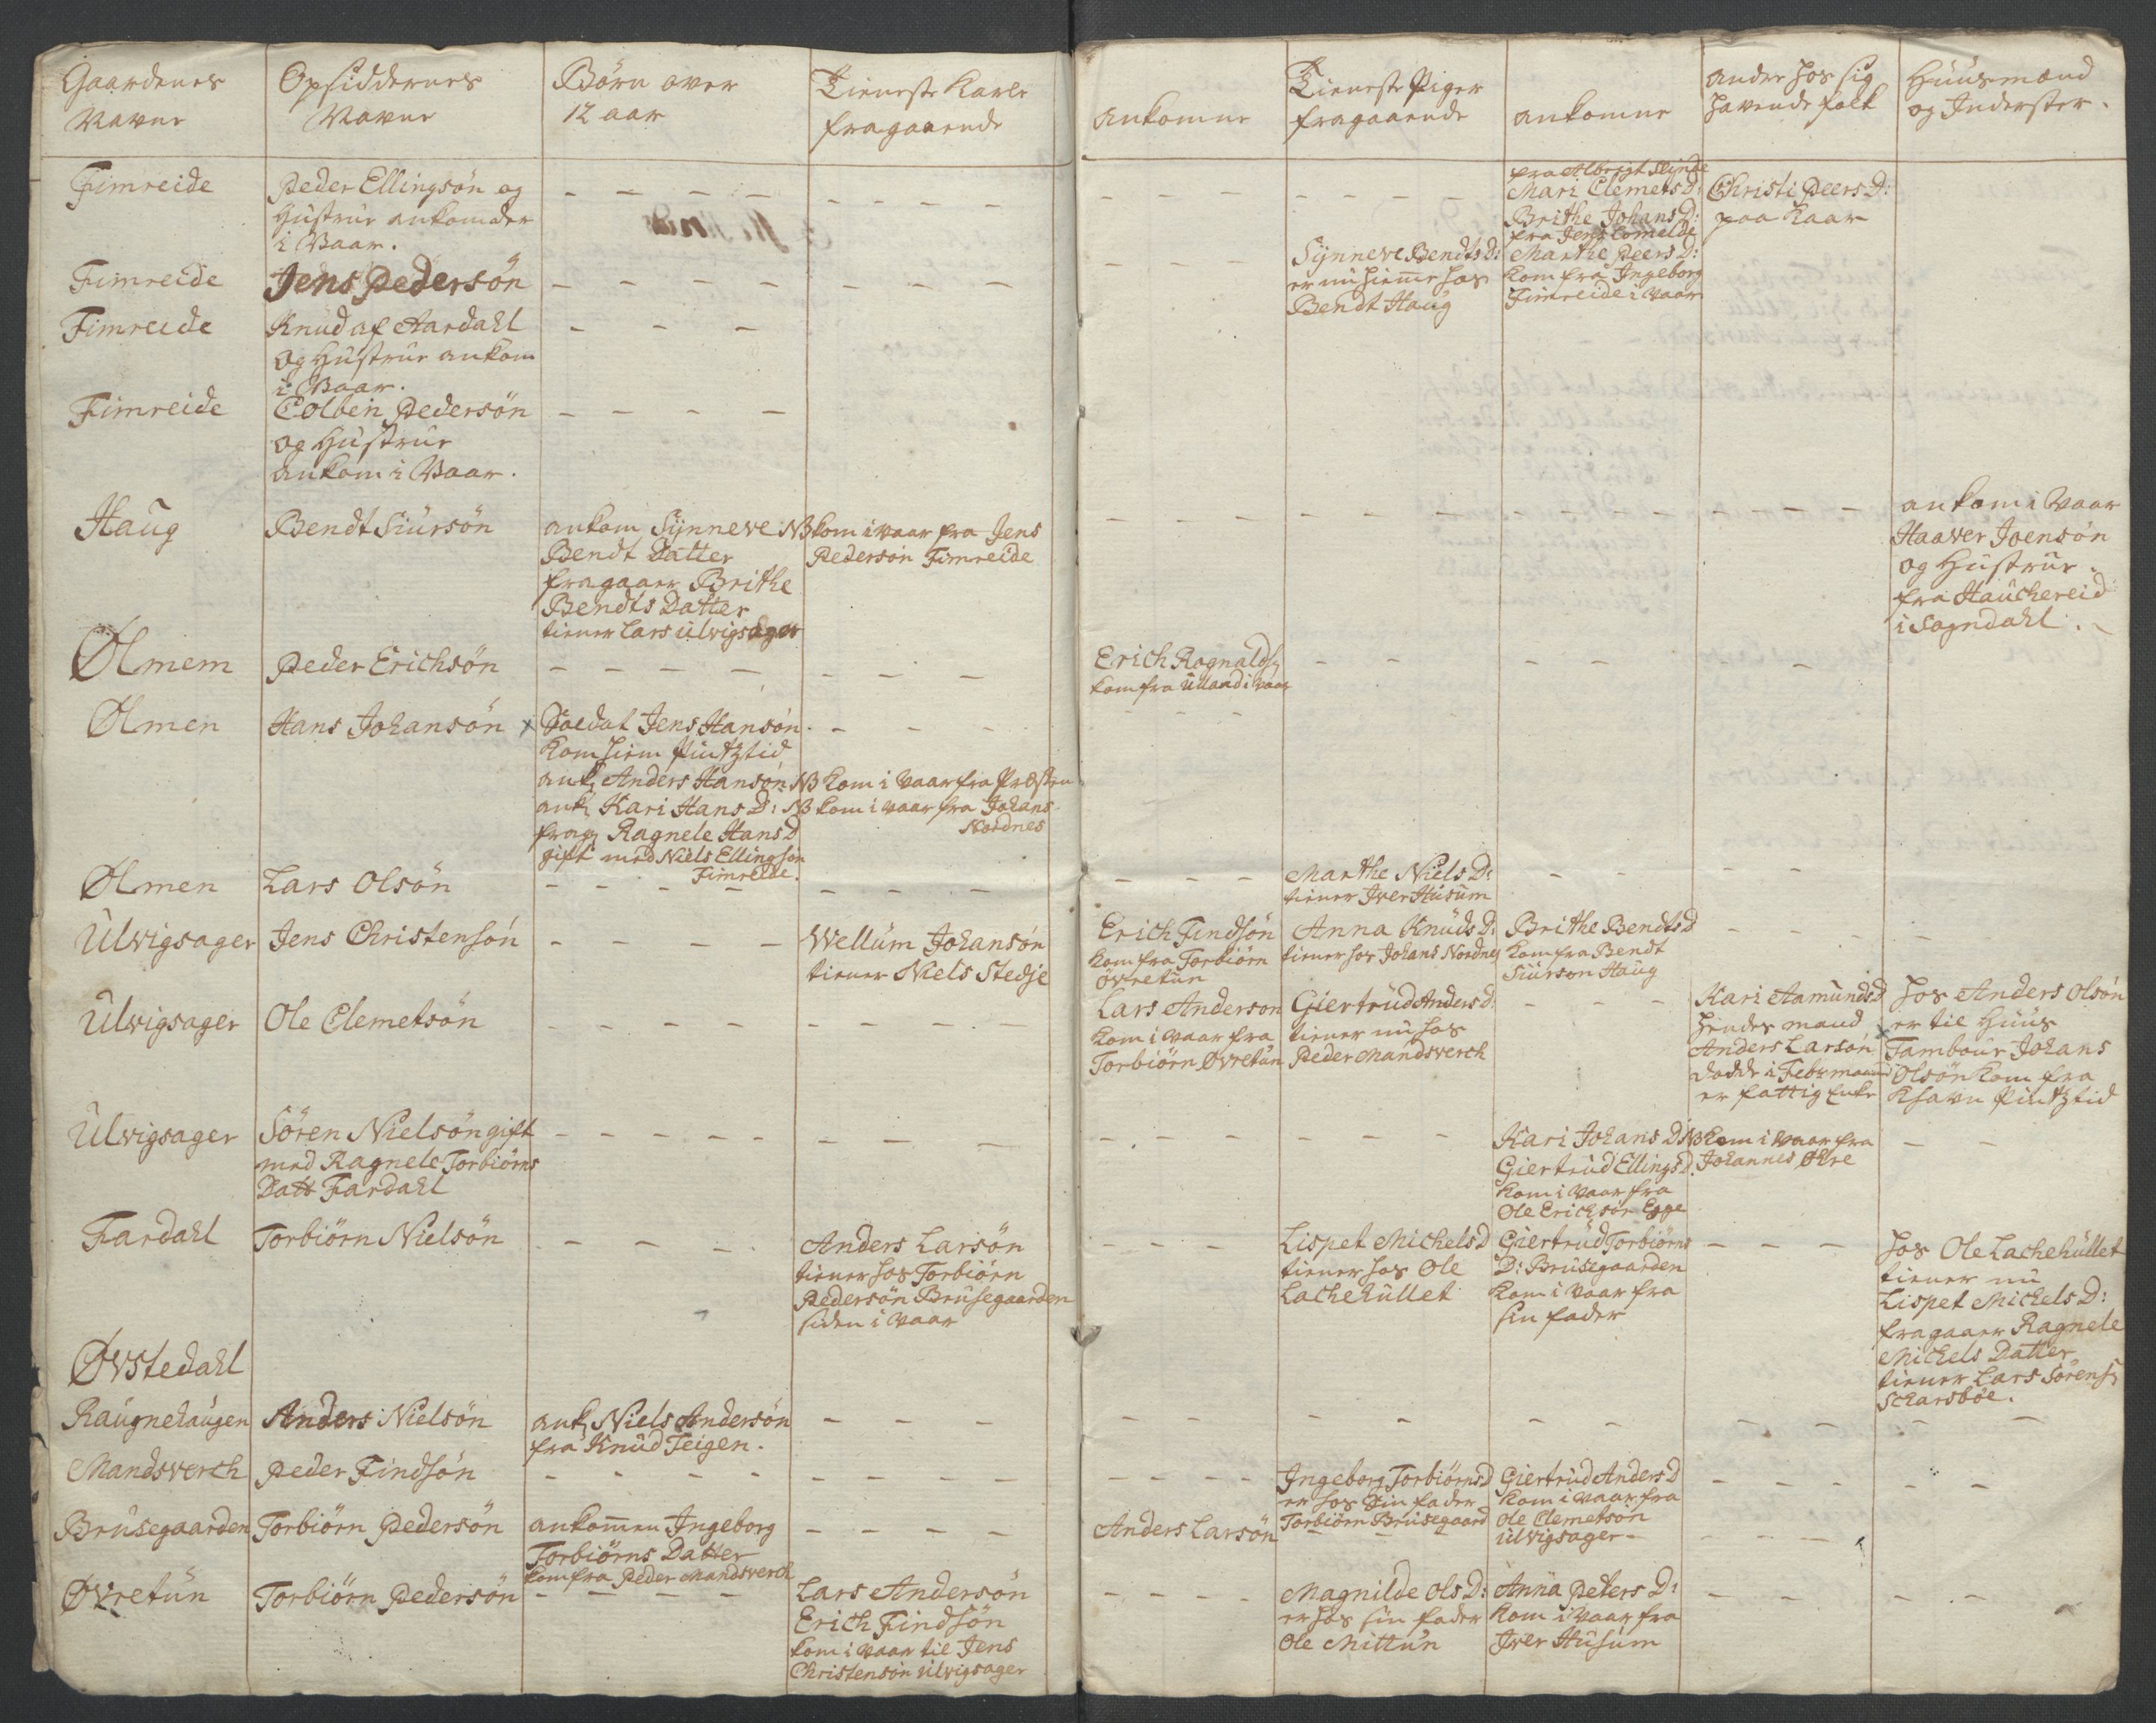 Gaardenes
Navne
Opsiddernes
Navne
Börn over
12 aar
Tieneste Karle
fragaaende
ankomne
Tieneste Piger
fragaaende
ankomne
ander hos sig
havende folk
Huusmænd
og Inderster.
Fimreide
Peder Ellingsön og
Hustrue ankom der
i Vaar.
fra Albrigt Slinde
Mari Clemets D:
Brithe Johans D:
fra Jens Lomelde
Christi Peers D:
paa Kaar
Fimreide
Jens Pedersön
Synneve Bendts D:
er nu hieme hos
Bendt Haug
Marthe Peers D:
kom fra Ingeborg
Fimreide i vaar
Fimreide
Knud af Aardahl
og Hustrue ankom
i Vaar.
Fimreide
Colbein Pedersön
og Hustrue
ankom i Vaar.
Haug
Bendt Siursön
ankom Synneve NB kom i vaar fra Jens
Bendt Datter Pederson Fimreide
fragaaer Brithe
Bendts Datter
tiener Lars Ulvigsager
ankom i Vaar
Haaver Joensön
og Hustrue
fra Hauchereid
i Sogndahl.
Ølmem
Peder Erichsön
Erich Ragnalds:
kom fra Ulland i vaar
Ølmen
Hans Johansön
x Soldat Jens Hansön
kom hiem Pintztid
ank: Anders Hansön NB kom i Vaar fra Præsten
ank: Kari Hans D: NB kom i vaar fra Johans
Nordnes
frag: Ragnele Hans D
gift med Niels Ellingsön
Fimreide.
Ølmen
Lars Olsön
Marthe Niels D:
tiener Iver Husum
Ulvigsager
Jens Christensön
Wellum Johansön
tiener Niels Stedje
Erich Findsön
kom fra Torbiörn
övretun
Anna Knuds D:
tiener hos Johans Nordnes
Brithe Bendts D
kom fra Bendt
Siurson Haug
Ulvigsager
Ole Clemetsön
Lars Anderson
kom i vaar fra
Torbiörn Øvretun
Giertrud Anders D:
tiener nu hos
Peder Mandsverch
Kari Aamunds D
hendes mand
Anders Larsön
dødde i Febr maaned
er fattig Enke
hos Anders Olsön
er til Huus
x Tambour Johans
Olsön kom fra
Khavn Pintztid
Ulvigsager
Sören Nielsön gift
med Ragnele Torbiörns
Datt Fardahl
Kari Johans D NB kom i vaar fra
Johannes Øhre
Giertrud Ellings D.
kom i vaar fra
Ole Erichsön Egge
Fardahl
Torbiörn Nielsön
Anders Larsön
tiener hos Torbiörn
Pedersön Brusegaarden
siden i vaar
Lispet Michels D
tiener hos Ole
Lachehullet
Giertrud Torbiörns
D: Brusegaarden
kom i vaar fra
sin fader
hos Ole Lachehullet
tiener nu
Lispet Michels D:
fragaaer Ragnele
Michels Datter
tiener Lars Sörens:
Scharsböe.
Øvstedahl
Raugnehaugen
Anders Nielsön
ank: Niels Andersön
fra Knud Teigen.
Mandsverch
Peder Findsön
Ingeborg Torbiörns D
er hos sin fader
Torbiörn Brusegaard
Giertrud Anders D
kom i vaar fra
Ole Clemetsön
Ulvigsager
Brusegaarden
Torbiörn Pedersön
ankommen Ingeborg
Torbiörns Datter
kom fra Peder Mandsverch
Anders Larsön
Øvretun
Torbiörn Pedersön
Lars Andersön
Erich Findsön
kom i vaar til Jens
Christensön Ulvigsager
Magnilde Ols D:
er hos sin fader
Ole Mittun
Anna Peters D:
kom i Vaar fra
Iver Husum